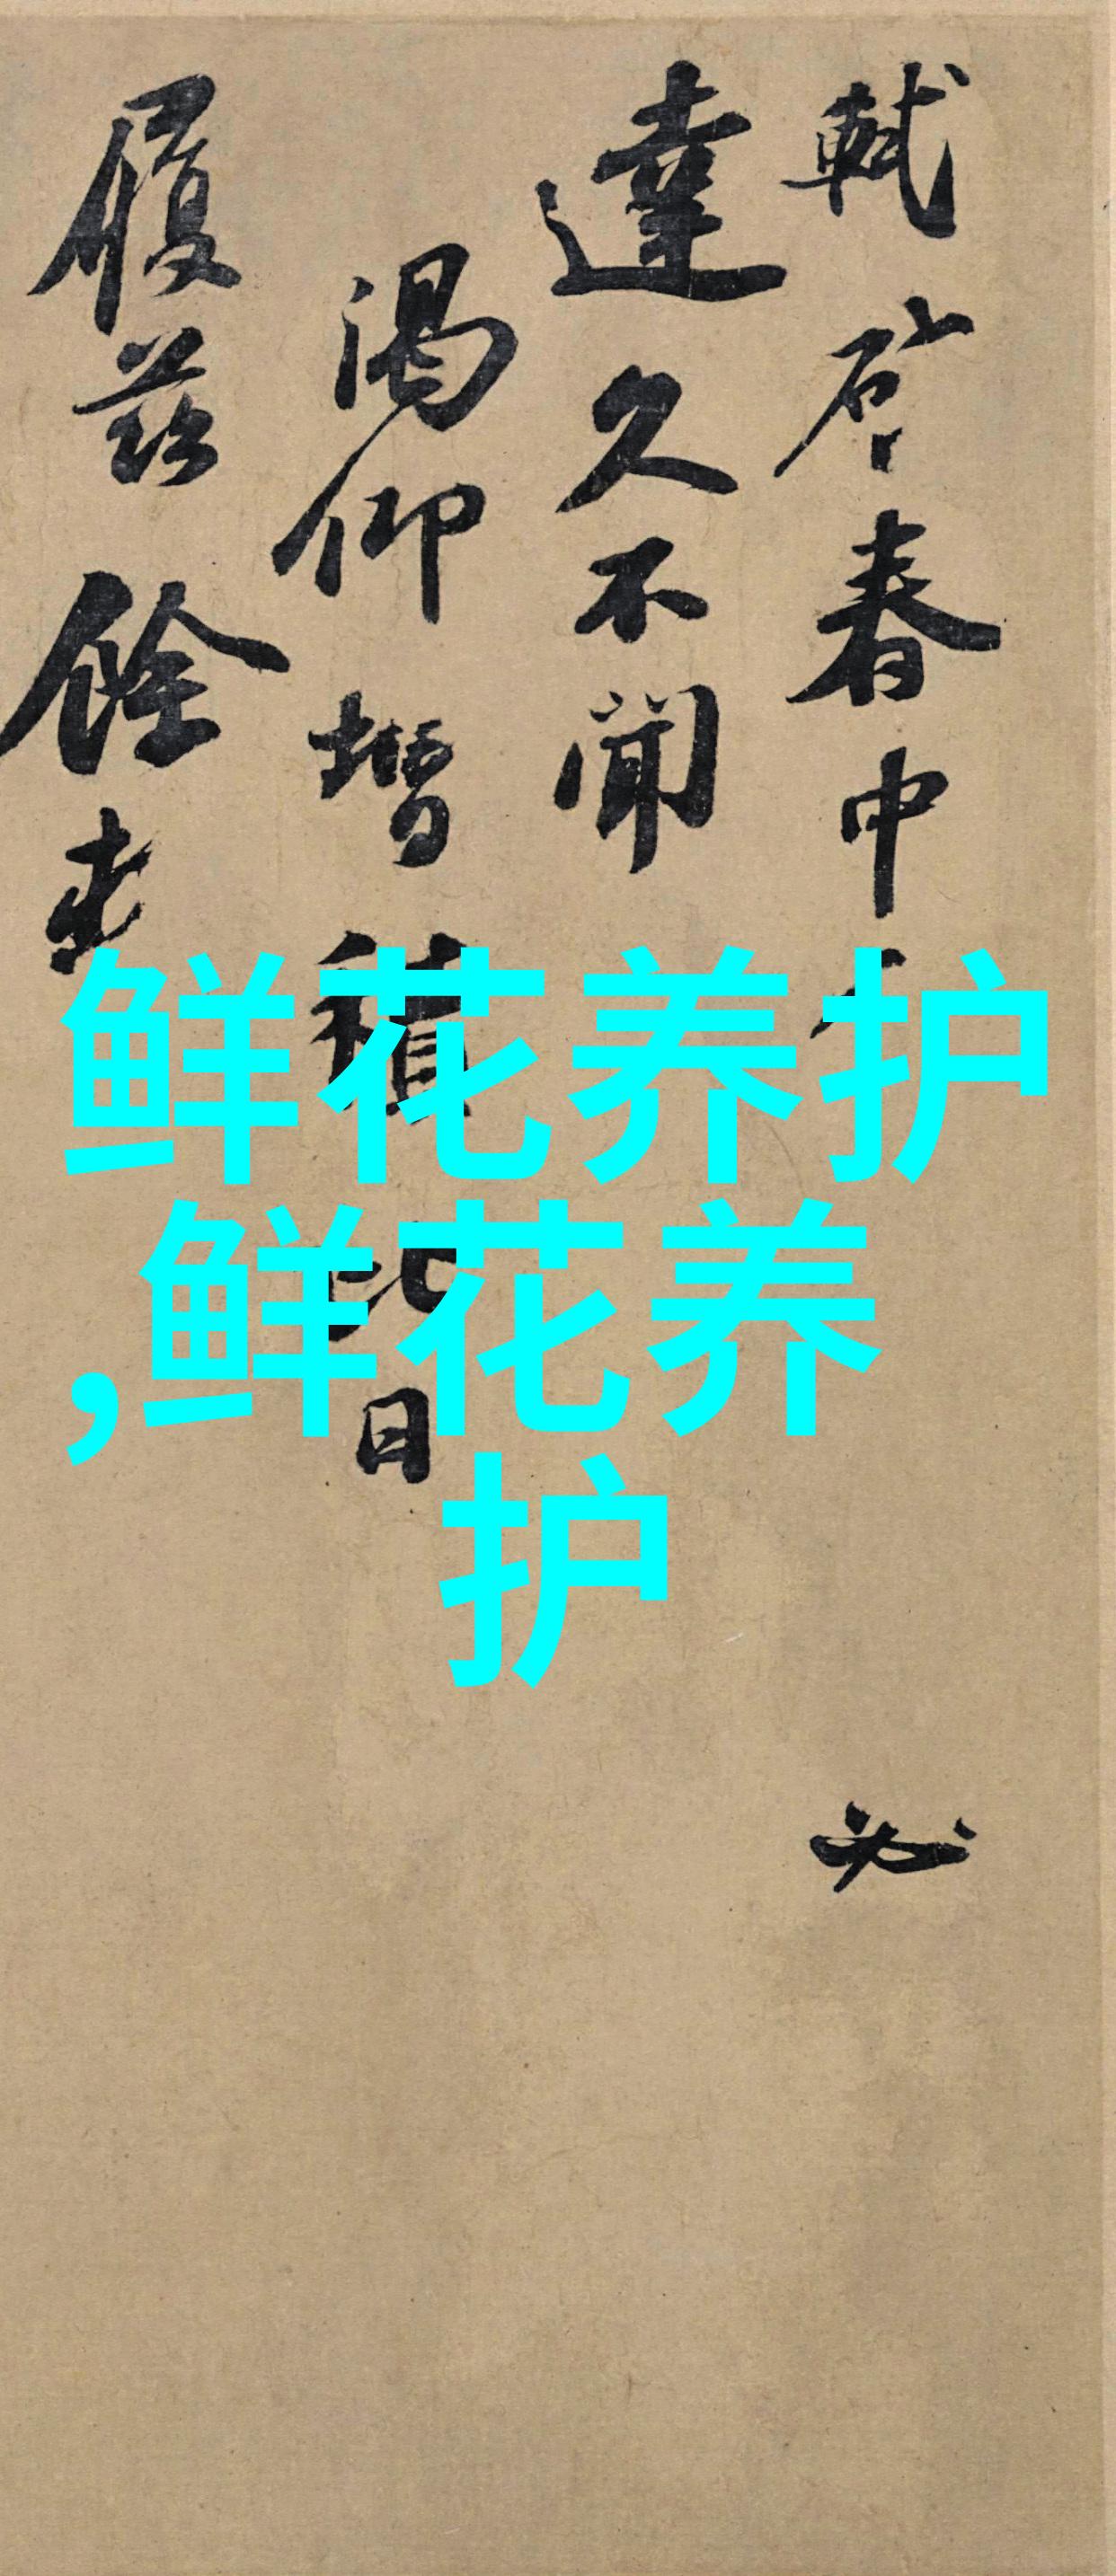 軾啓春中必
達久不聞
渴仰增積比日
履茲餘
鲜花养护
,鲜花养
护